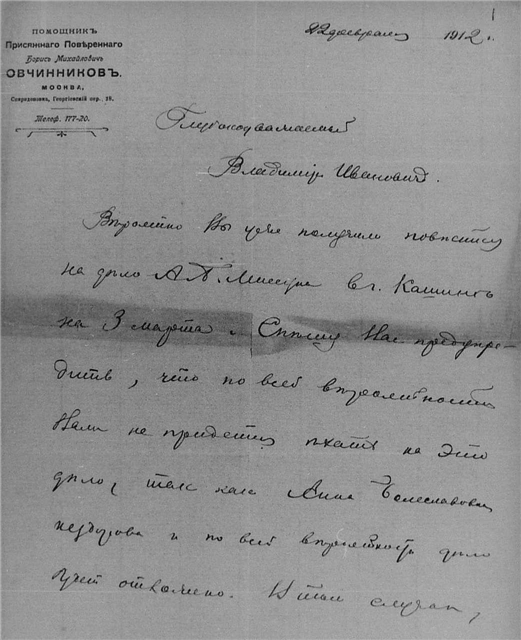 1
ПОМОЩНИКЪ
Присяжнаго Повѣреннаго
Борисъ Михайловичъ
ОВЧИННИКОВЪ.
МОСКВА,
Георгіевскій пер., 18.
Телеф. 177-20.
22 февраля 1912 г.
Глубокоуважаемый
Владиміръ Ивановичъ.
Вѣроятно Вы уже получили повѣстку
на дѣло А. в г. Кашинѣ
на 3 марта. Спѣшу Вас предупре-
дить, что по всей вѣроятности
Вам не придется ѣхать на это
дѣло, так как Анна Болеславовна
нездорова и по всей вѣроятности дѣло
будет отложено. В том случаѣ,